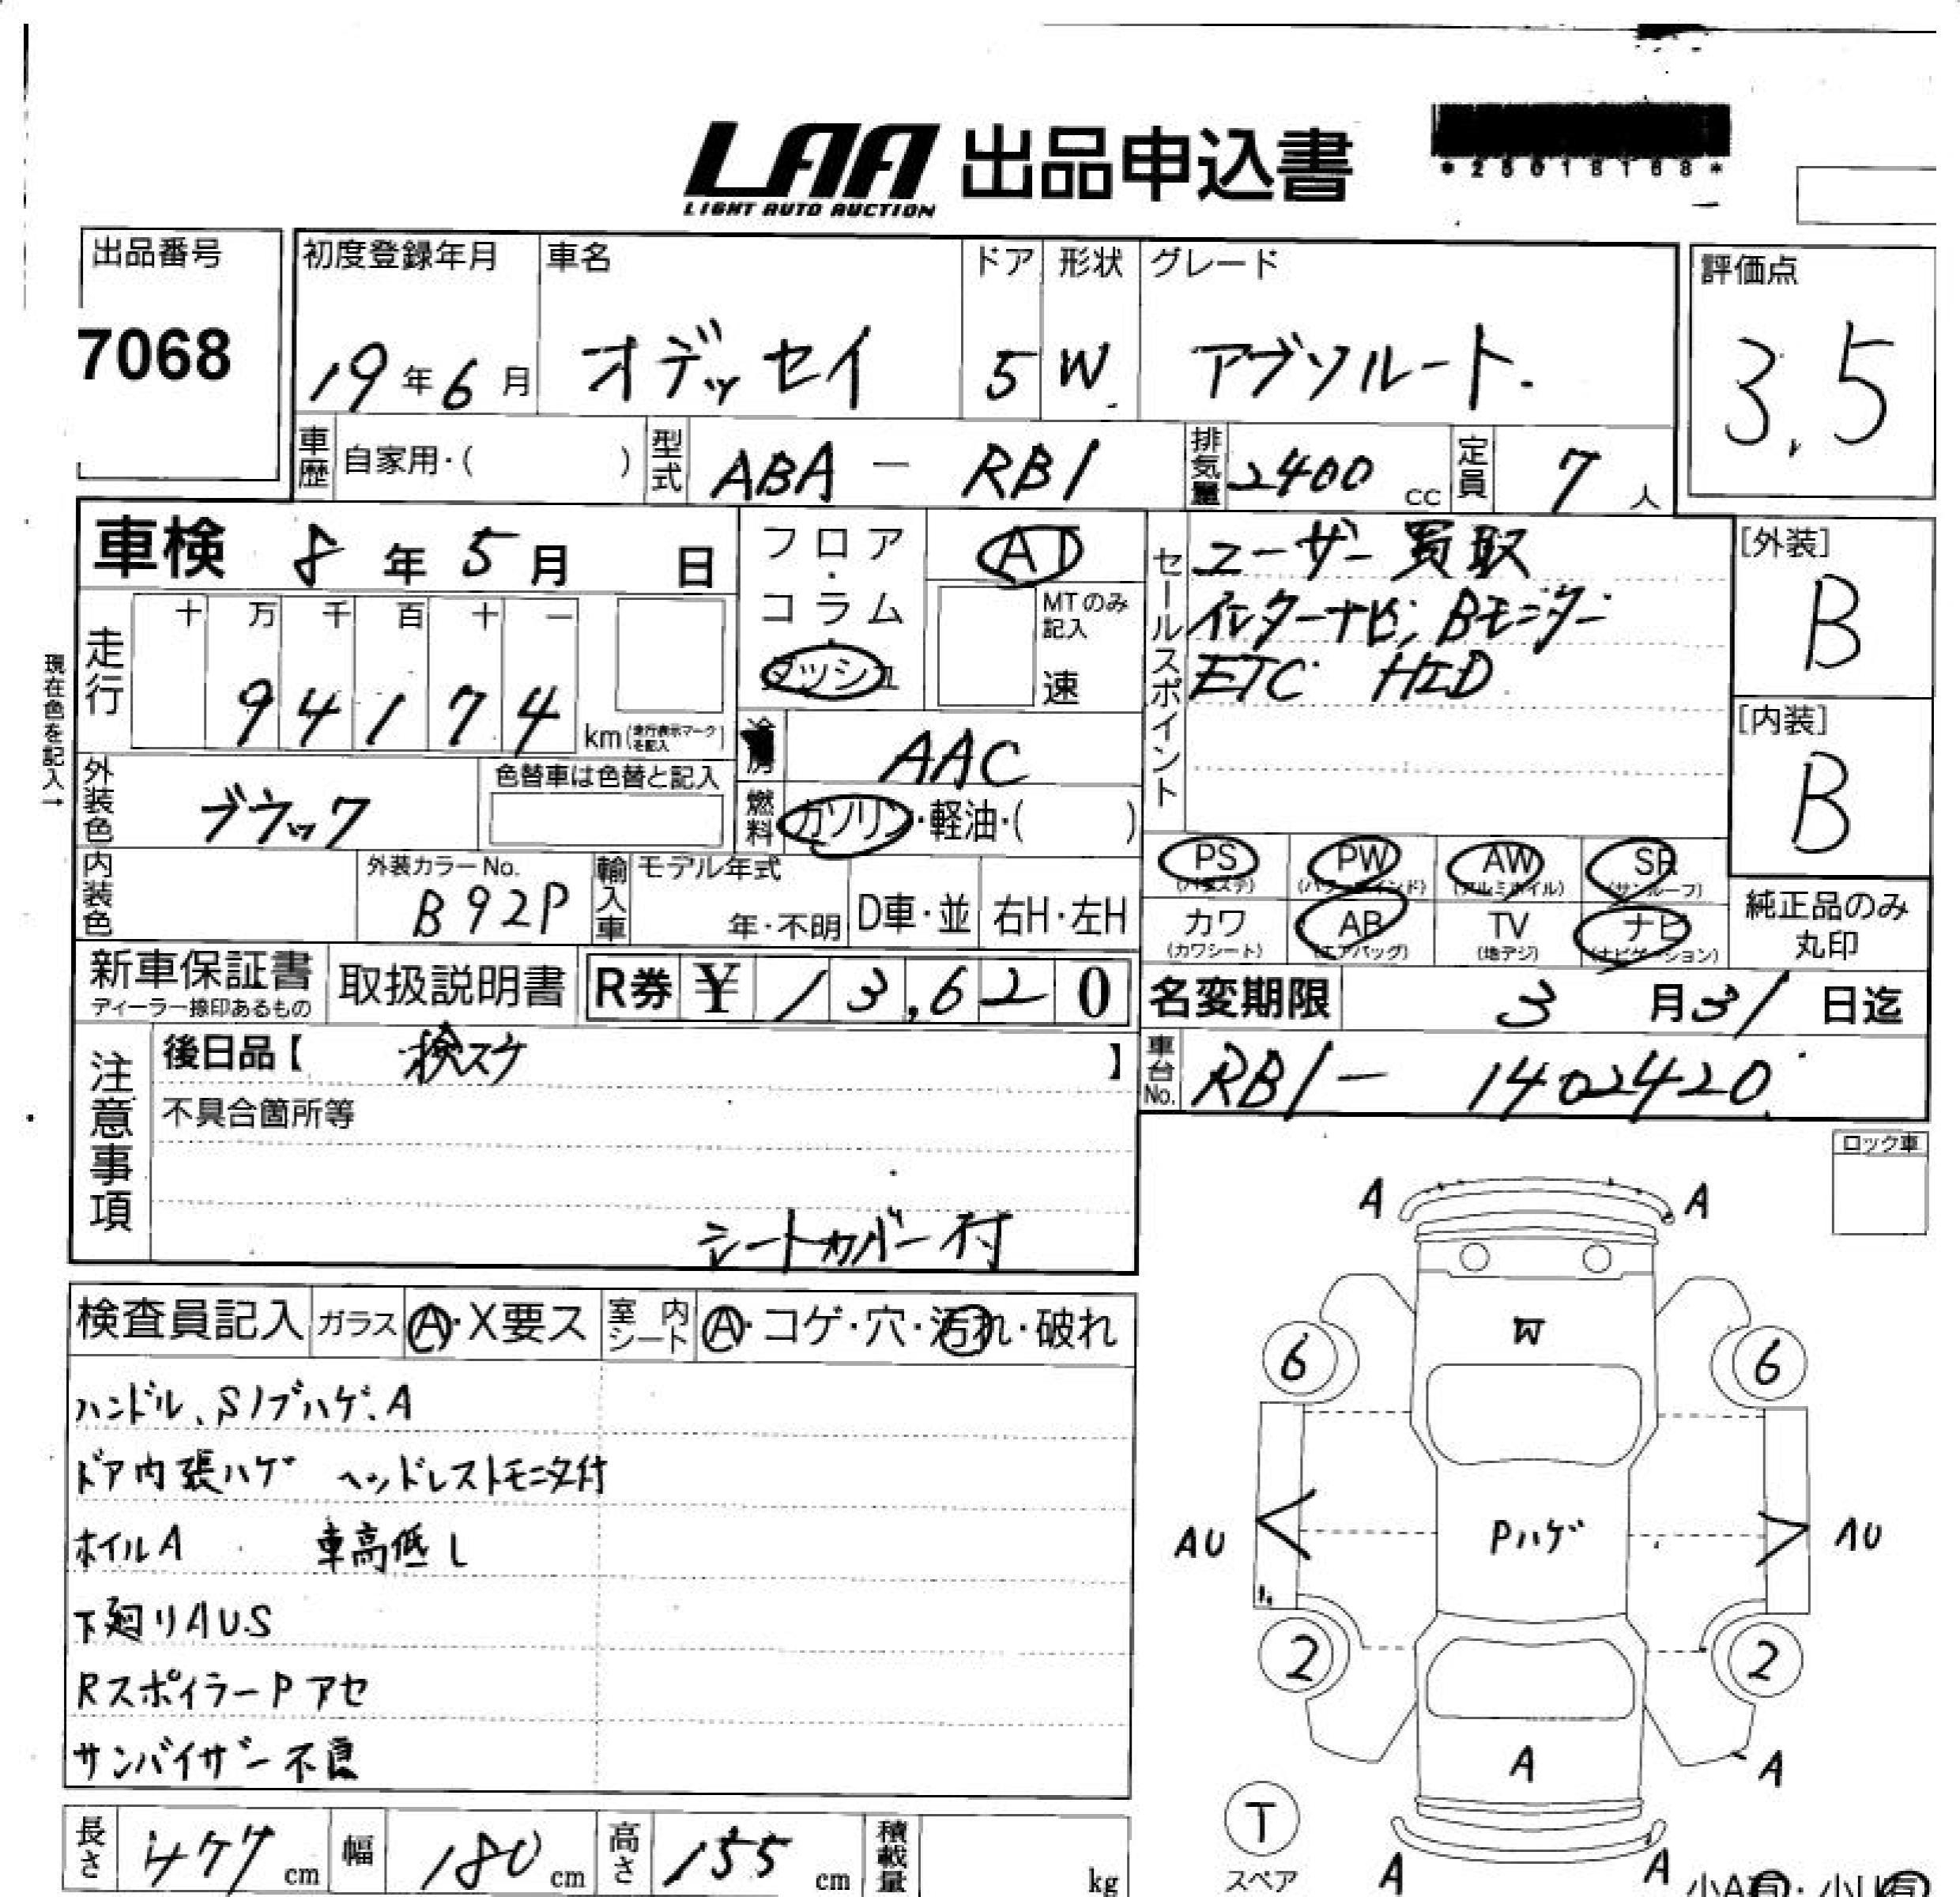 LAA 出品申込書
LIGHT AUTO AUCTION
*25018168*
出品番号
7068
初度登録年月
19年6月
車名
オデッセイ
ドア
5
形状
W
グレード
アブソルート.
評価点
3.5
車歴 自家用・( )
型式 ABA - RB1
排気量 2400 cc
定員 7 人
車検 8年 5月 日
走行
十 万 千 百 十 一
9 4 1 7 4 km(走行表示マークを記入)
現在色を記入→
外装色 ブラック
色替車は色替と記入
内装色
外装カラーNo.
B92P
フロア・コラム・ダッシュ
AT
MTのみ記入
速
冷房 AAC
燃料 ガソリン・軽油・( )
輸入車 モデル年式
年・不明 D車・並 右H・左H
セールスポイント
ユーザー買取
インターナビ, Bモニター
ETC HID
[外装]
B
[内装]
B
PS PW AW SR
(パワステ) (パワーウインド) (アルミホイル) (サンルーフ)
カワ AB TV ナビ
(カワシート) (エアバッグ) (地デジ) (ナビゲーション)
純正品のみ
丸印
新車保証書
ディーラー捺印あるもの
取扱説明書
R券 ¥ 13,620
名変期限 3月31日迄
車台No. RB1- 1402420
注意事項
後日品【 検スケ 】
不具合箇所等
シートカバー付
ロック車
検査員記入 ガラス A・X要ス 室内シート A・コゲ・穴・汚れ・破れ
ハンドル、Sノブハゲ、A
ドア内張ハゲ ヘッドレストモニタ付
ホイルA 車高低し
下廻りAUS
RスポイラーPアセ
サンバイザー不良
A A
W
6 6
AU Pハゲ AU
2 2
A A
T
スペア
A A
長さ 477 cm 幅 180 cm 高さ 155 cm 積載量 kg